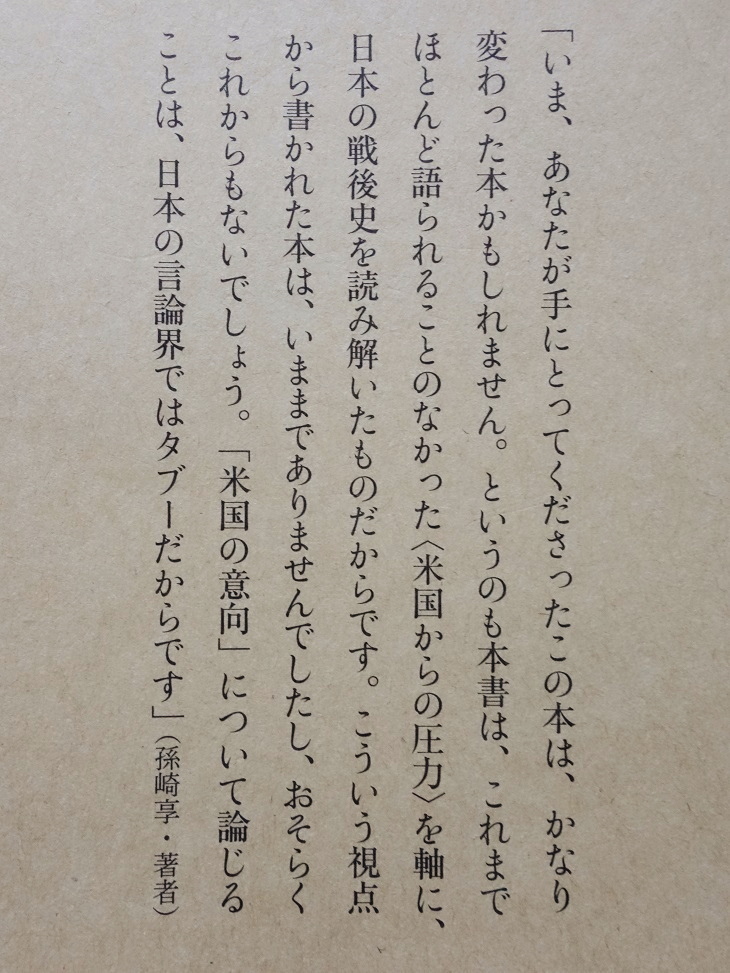 「いま、あなたが手にとってくださったこの本は、かなり
変わった本かもしれません。というのも本書は、これまで
ほとんど語られることのなかった〈米国からの圧力〉を軸に、
日本の戦後史を読み解いたものだからです。こういう視点
から書かれた本は、いままでありませんでしたし、おそらく
これからもないでしょう。「米国の意向」について論じる
ことは、日本の言論界ではタブーだからです」（孫崎享・著者）